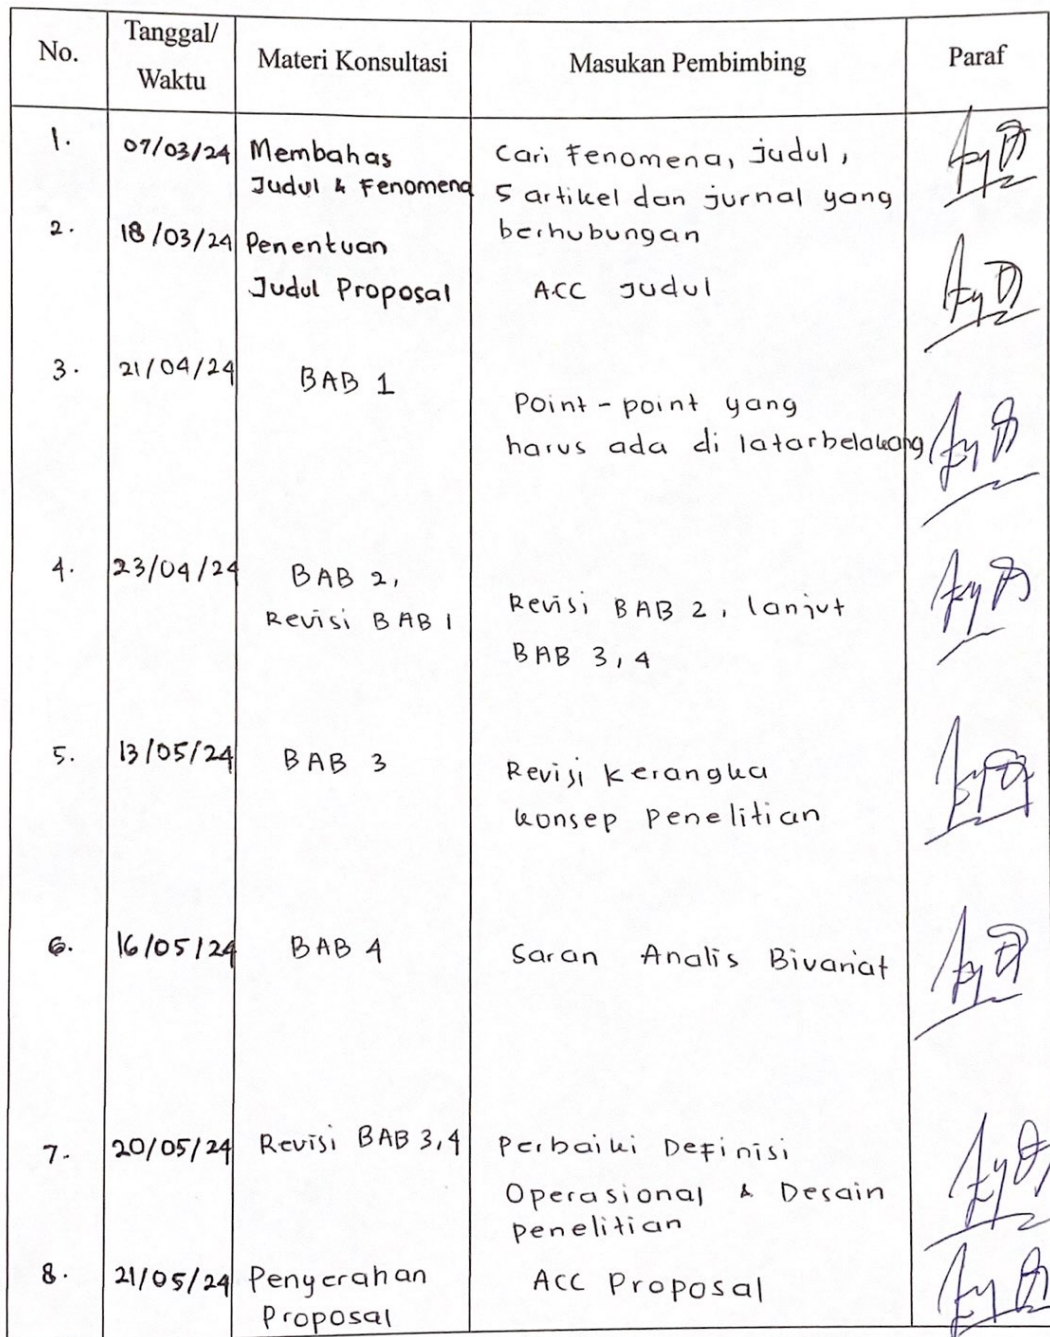 No. Tanggal/ Waktu Materi Konsultasi Masukan Pembimbing Paraf
1. 07/03/24 Membahas Cari Fenomena, Judul,
Judul & Fenomena 5 artikel dan jurnal yang
berhubungan
2. 18/03/24 Penentuan
Judul Proposal ACC Judul
3. 21/04/24 BAB 1
Point-point yang
harus ada di latarbelakang
4. 23/04/24 BAB 2,
Revisi BAB 1 Revisi BAB 2, lanjut
BAB 3,4
5. 13/05/24 BAB 3 Revisi kerangka
konsep penelitian
6. 16/05/24 BAB 4 Saran Analis Bivariat
7. 20/05/24 Revisi BAB 3,4 Perbaiki Definisi
Operasional & Desain
penelitian
8. 21/05/24 Penyerahan ACC Proposal
Proposal